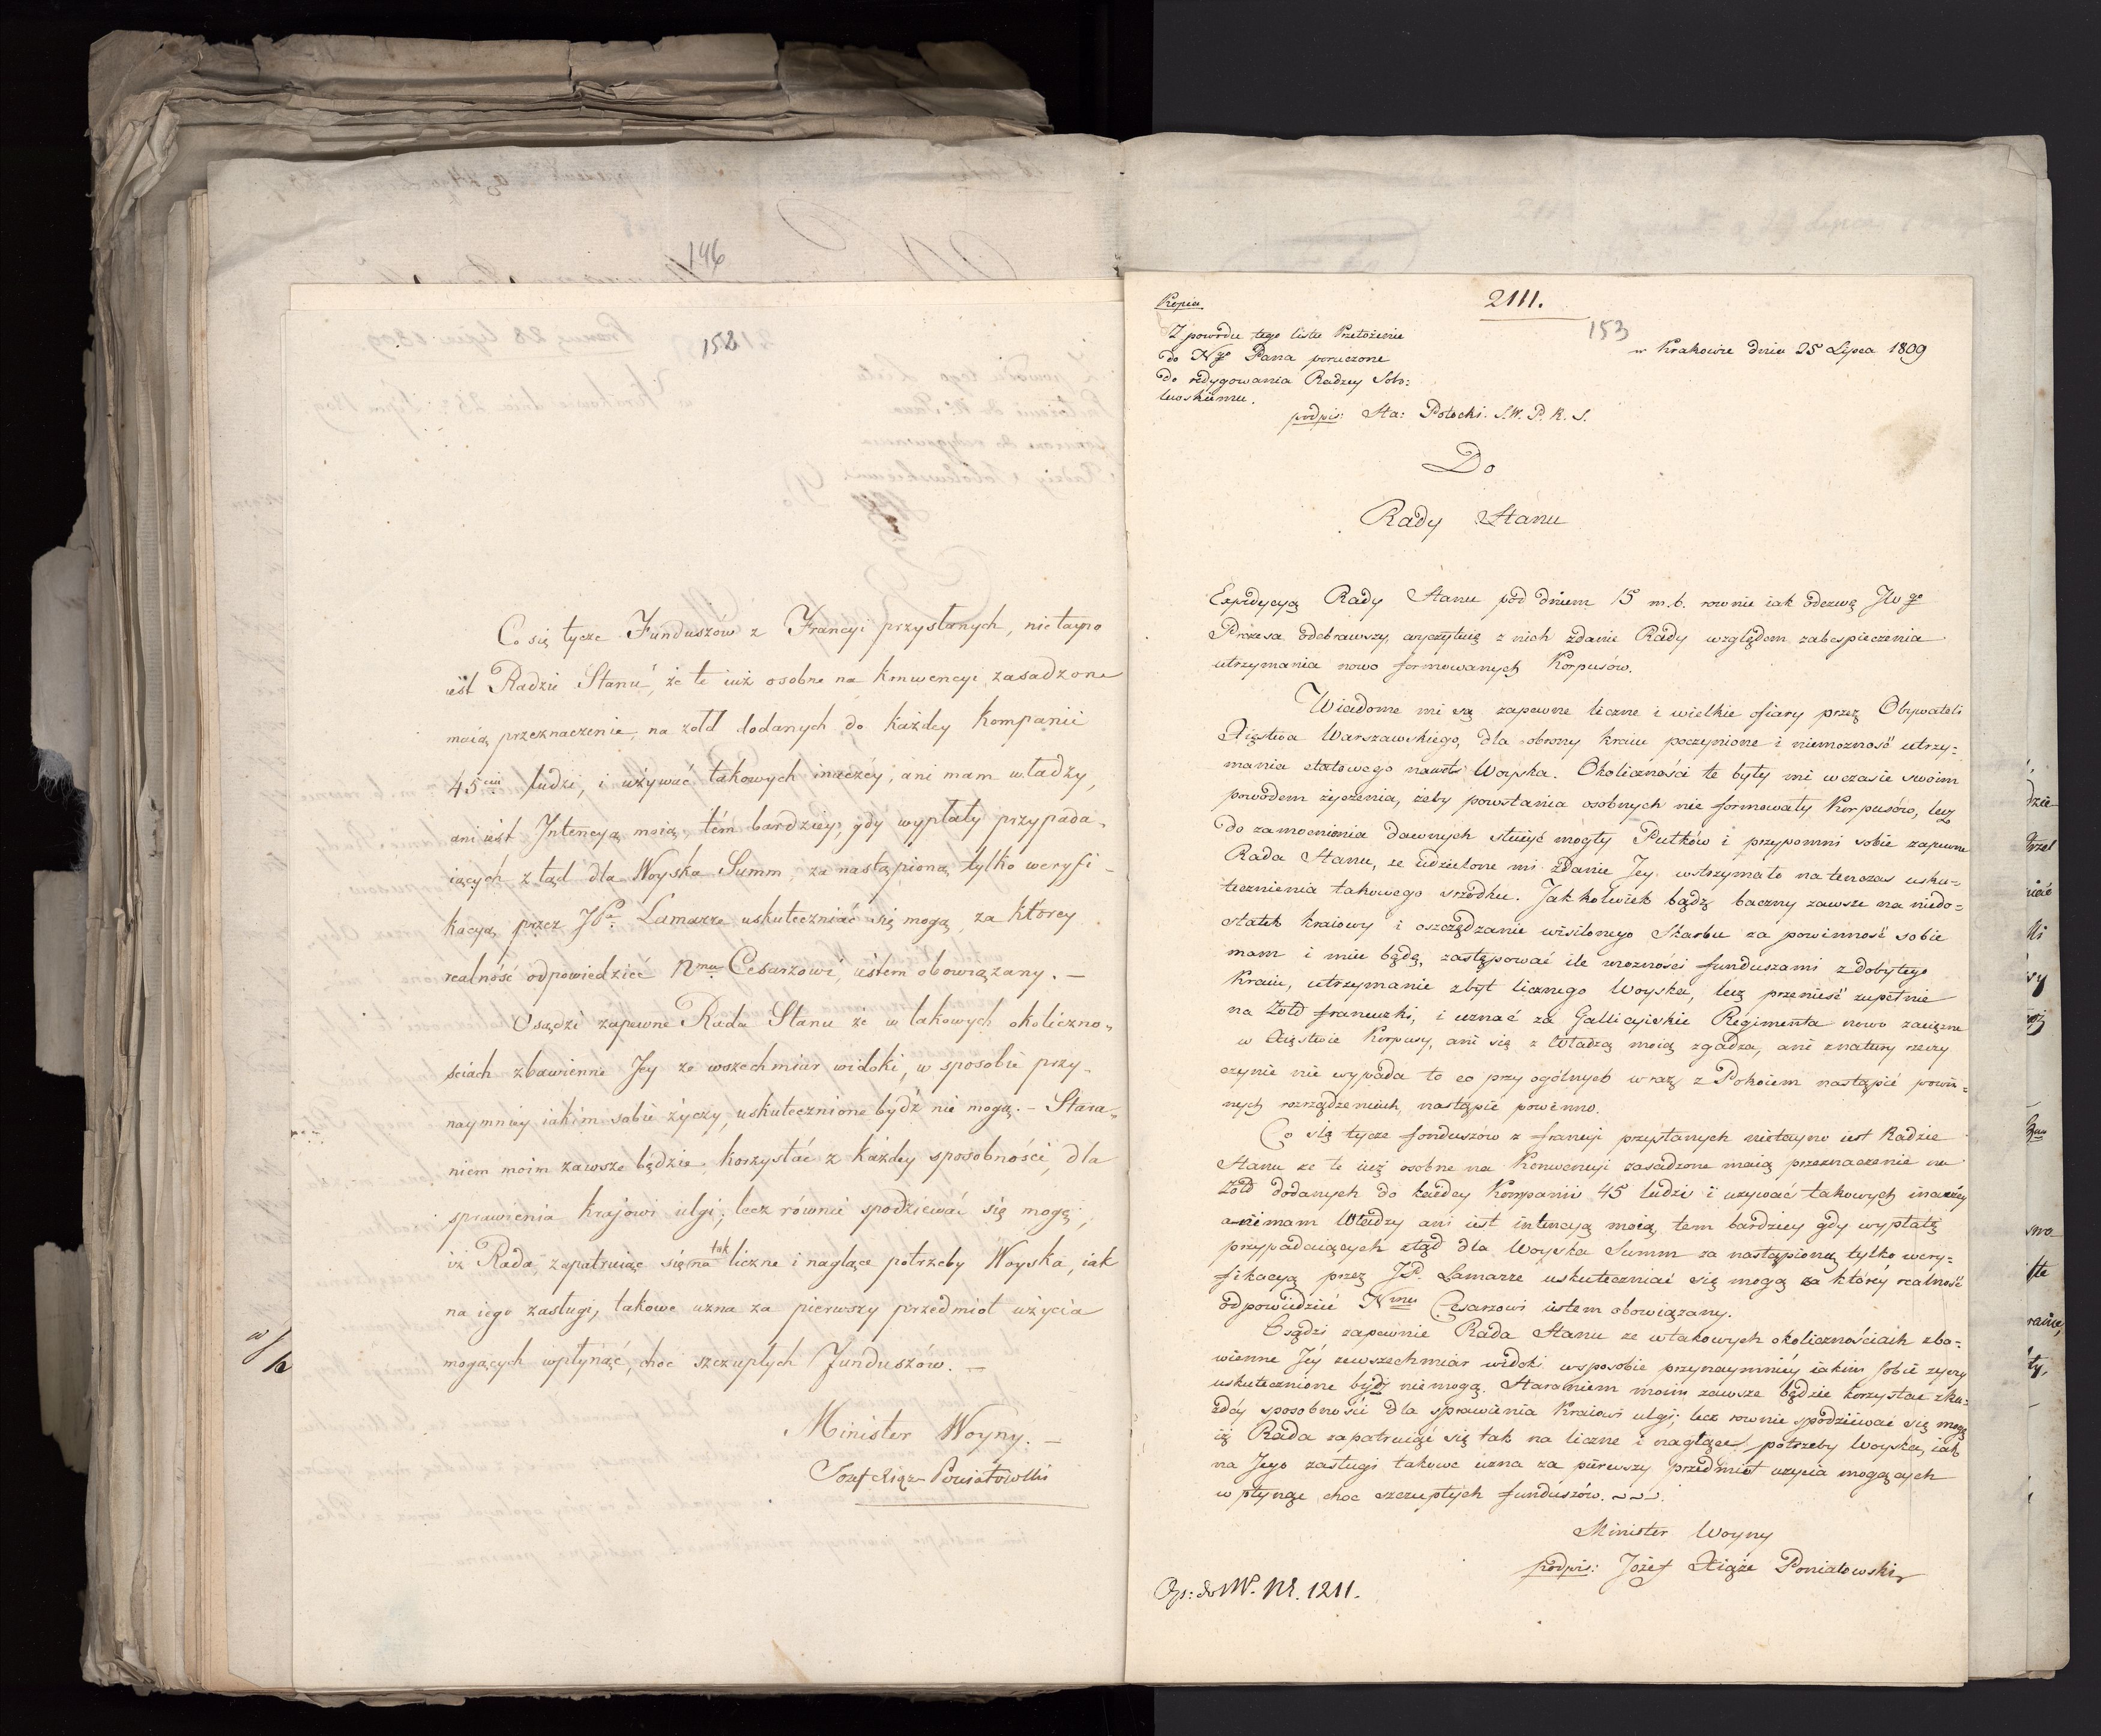 146
152
Co się tycze Funduszów z Francyi przysłanych, nie tayno
iest Radzie Stanu, że te iuż osobne na konwencyi zasadzone
maią przeznaczenie, na żołd dodanych do każdey kompanii
45ciu ludzi, i używać takowych inaczéy, ani mam władzy,
ani iest Intencyą moią, tém bardziey, gdy wypłaty przypada-
iących z tąd dla Woyska Summ, za nastąpioną tylko weryfi-
kacyą przez JPa Lamarre uskuteczniać się mogą, za którey
realność odpowiedzieć Nmu Cesarzowi, iestem obowiązany. —
Osądzi zapewne Rada Stanu że w takowych okoliczno-
ściach zbawienne Jey ze wszechmiar widoki, w sposobie przy-
naymniey iakim sobie życzy, uskutecznione bydź nie mogą. — Stara-
niem moim zawsze będzie, korzystać z każdey sposobności, dla
sprawienia krajowi ulgi; lecz równie spodziewać się mogę,
iż Rada, zapatruiąc się na tak liczne i naglące potrzeby Woyska, iak
na iego zasługi, takowe uzna za pierwszy przedmiot użycia
mogących wpłynąć, choć szczupłych Funduszów. —
Minister Woyny. —
Jozef Xiąże Poniatowski
Kopia
2111.
153
Z powodu tego listu Przełożenie
do Nygo Pana poruczone
do redygowania Radzcy Sobo-
lewskiemu.
podpis: Sta: Potocki. S.W. P. R. S.
w Krakowie dnia 25 Lipca 1809
Do
Rady Stanu
Expedycyą Rady Stanu pod dniem 15 m.b. rownie iak odezwę JW go
Prezesa, odebrawszy, wyczytuię z nich zdanie Rady względem zabespieczenia
utrzymania nowo formowanych Korpusów.
Wiadome mi są zapewne liczne i wielkie ofiary przez Obywateli
Xięstwa Warszawskiego, dla obrony kraiu poczynione i niemożność utrzy-
mania etatowego nawet Woyska. Okoliczności te były mi wczasie swoim
powodem życzenia, żeby powstania osobnych nie formowały Korpusów, lecz
do zamocnienia dawnych służyć mogły Pułków i przypomni sobie zapewne
Rada Stanu, ze udzielone mi zdanie Jey wstrzymało na tenczas usku-
tecznienia takowego srzodku. Jakkolwiek bądz baczny zawsze na niedo-
statek kraiowy i oszczędzanie wysilonego Skarbu za powinność sobie
mam i miec będę, zastępować ile możności funduszami zdobytego
Kraiu, utrzymanie zbyt licznego Woyska, lecz przenieść zupełnie
na Żołd francuzki, i uznać za Gallicyiskie Regimenta nowo zaciężne
w Xięstwie Korpusy, ani się z Władzą moią zgadza, ani znatury rzeczy
czynie nie wypada to co przy ogólnych wraz z Pokoiem nastąpić powin-
nych rozrządzeniach, nastąpić powinno.
Co się tycze fonduszów z francyi przysłanych nietayno iest Radzie
Stanu ze te iuż osobne na Konwencyi zasadzone maią przeznaczenie na
żołd dodanych do każdey Kompanii 45 ludzi i uzywać takowych inaczéy
ani mam Władzy ani iest intencyą moią, tem bardziey gdy wypłatę
przypadaiących ztąd dla Woyska Summ za nastąpioną tylko wery-
fikacyą przez JP. Lamarre uskuteczniać się mogą za którey realność
odpowiedzieć Nmu Cesarzowi iestem obowiązany.
Osądzi zapewnie Rada Stanu ze wtakowych okolicznościach zba-
wienne Jéy zewszechmiar widoki wsposobie przynaymniéy iakim sobie zyczy
uskutecznione bydź niemogą. Staraniem moim zawsze będzie korzystac zka-
zdéy sposobności dla sprawienia Kraiowi ulgi; lecz rownie spodziewać się mogę
iż Rada zapatruiąć się tak na liczne i naglące potrzeby Woyska, iak
na Jego zasługi takowe uzna za pierwszy przedmiot uzycia mogących
wpłynąć choc szczupłych funduszów.
Minister Woyny
podpis: Jozef Xiąże Poniatowski
Nr. 1211.